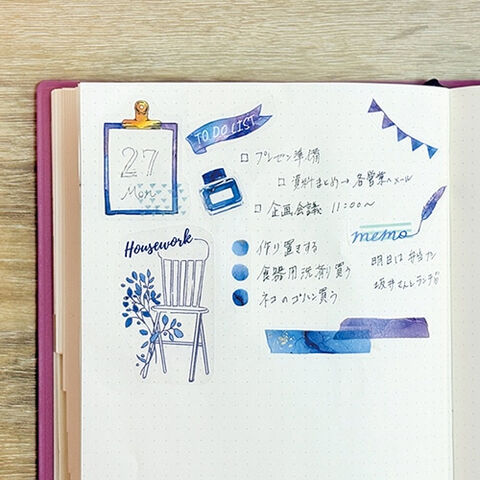 27
Mon
TO DO LIST
プレゼン準備
資料まとめ→各営業へメール
企画会議 11:00〜
Housework
作り置きする
食器用洗剤買う
ネコのゴハン買う
memo
明日は弁当ナシ
坂井さんとランチ